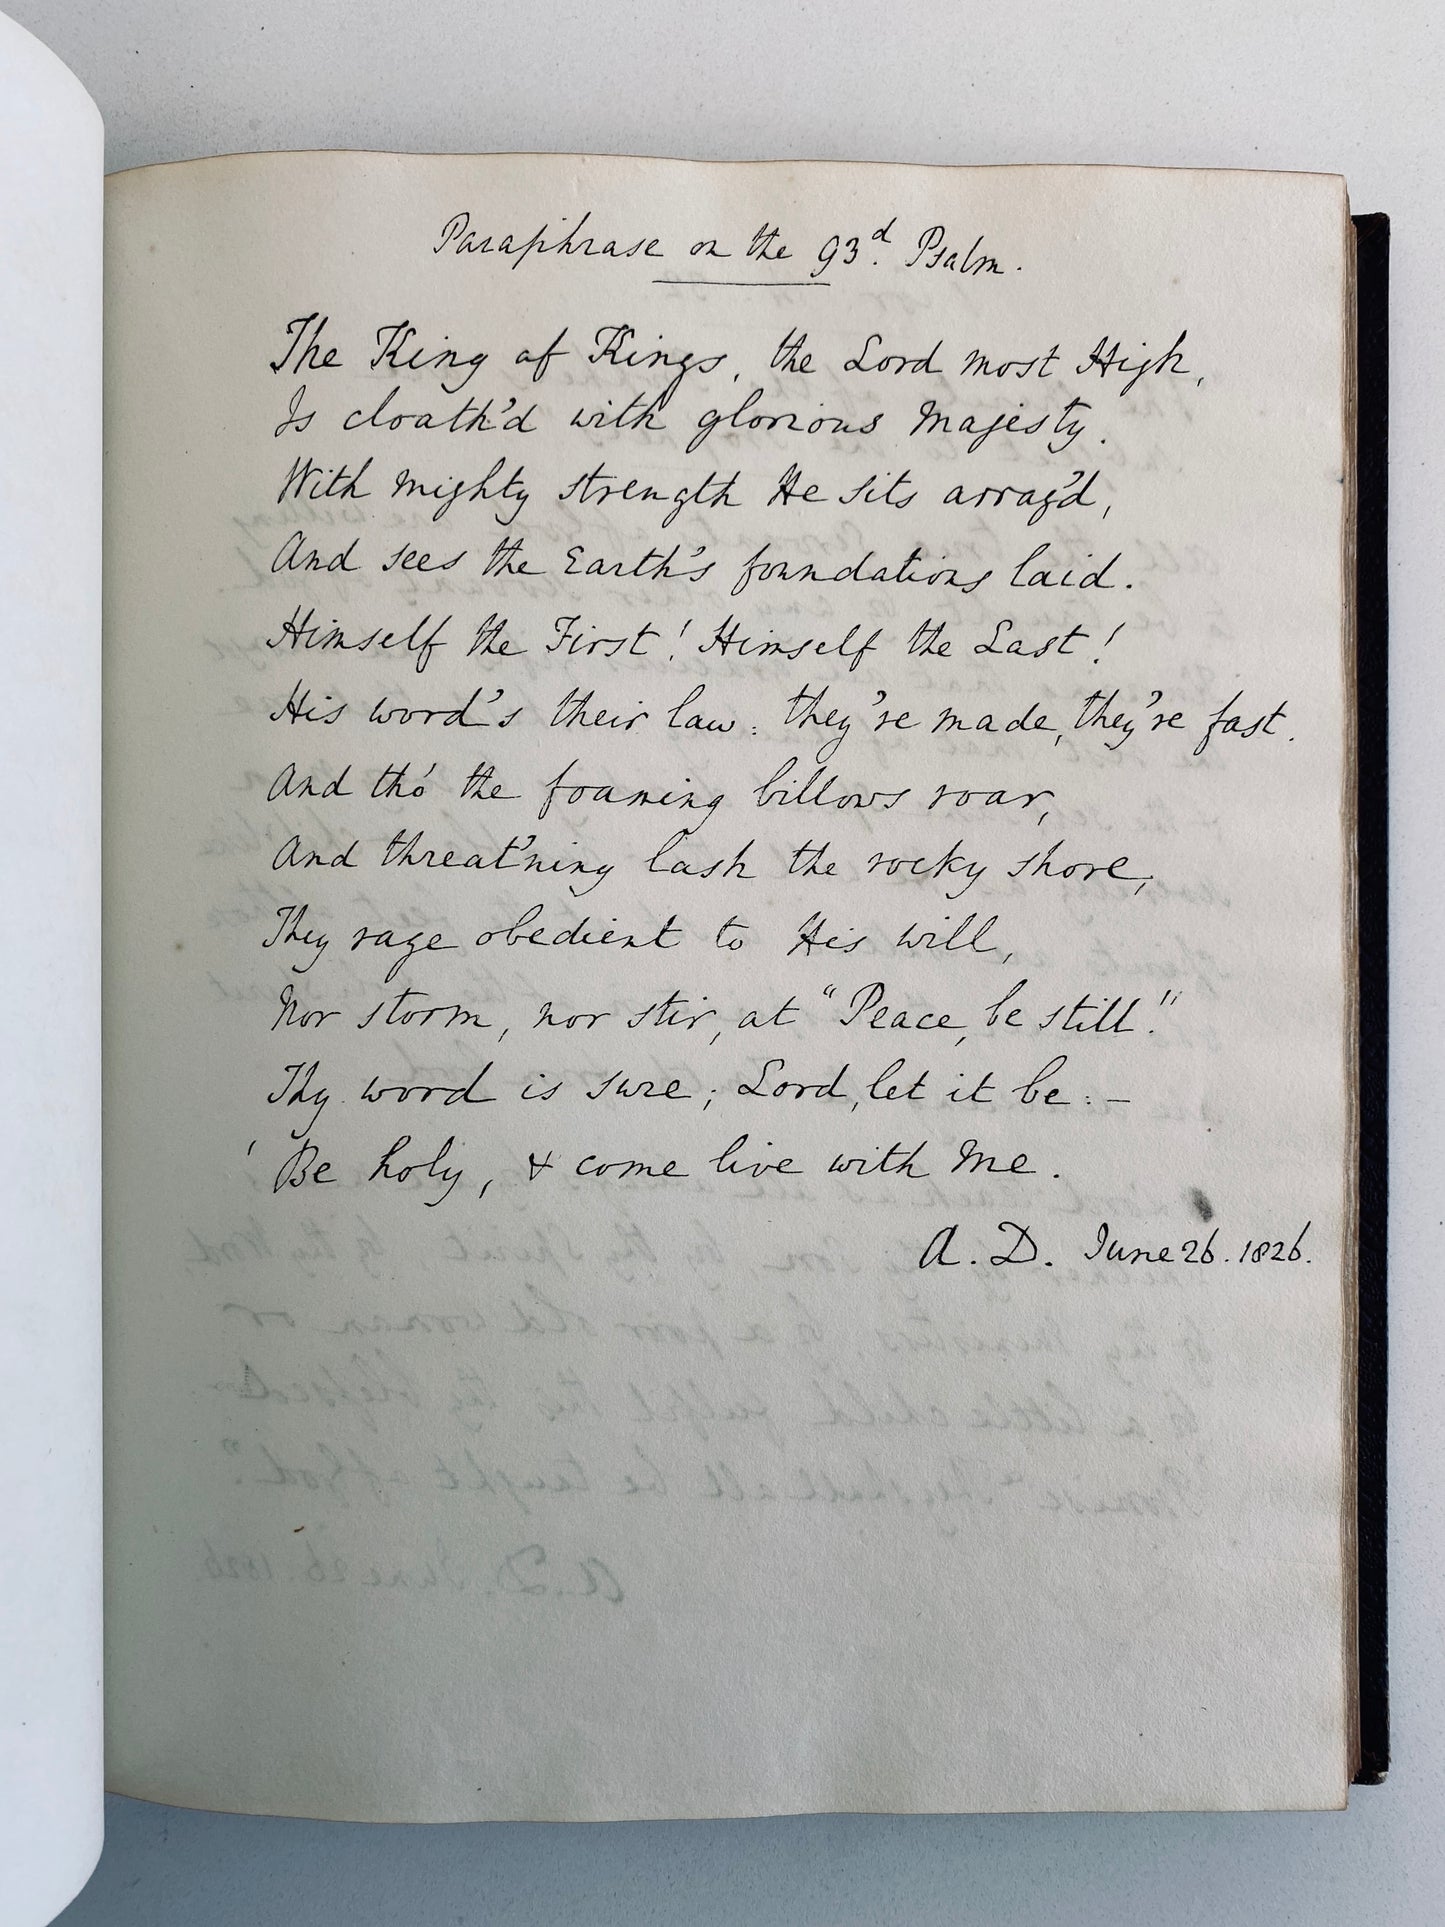 Paraphrase on the 93.d Psalm.
The King of Kings, the Lord most High,
Is cloath'd with glorious Majesty.
With mighty strength He sits array'd,
And sees the Earth's foundations laid.
Himself the First! Himself the Last!
His word's their law: they're made, they're fast.
And tho' the foaming billows roar,
And threat'ning lash the rocky shore,
They rage obedient to His will,
Nor storm, nor stir, at "Peace, be still."
Thy word is sure; Lord, let it be:-
'Be holy, & come live with Me.
A. D. June 26. 1826.